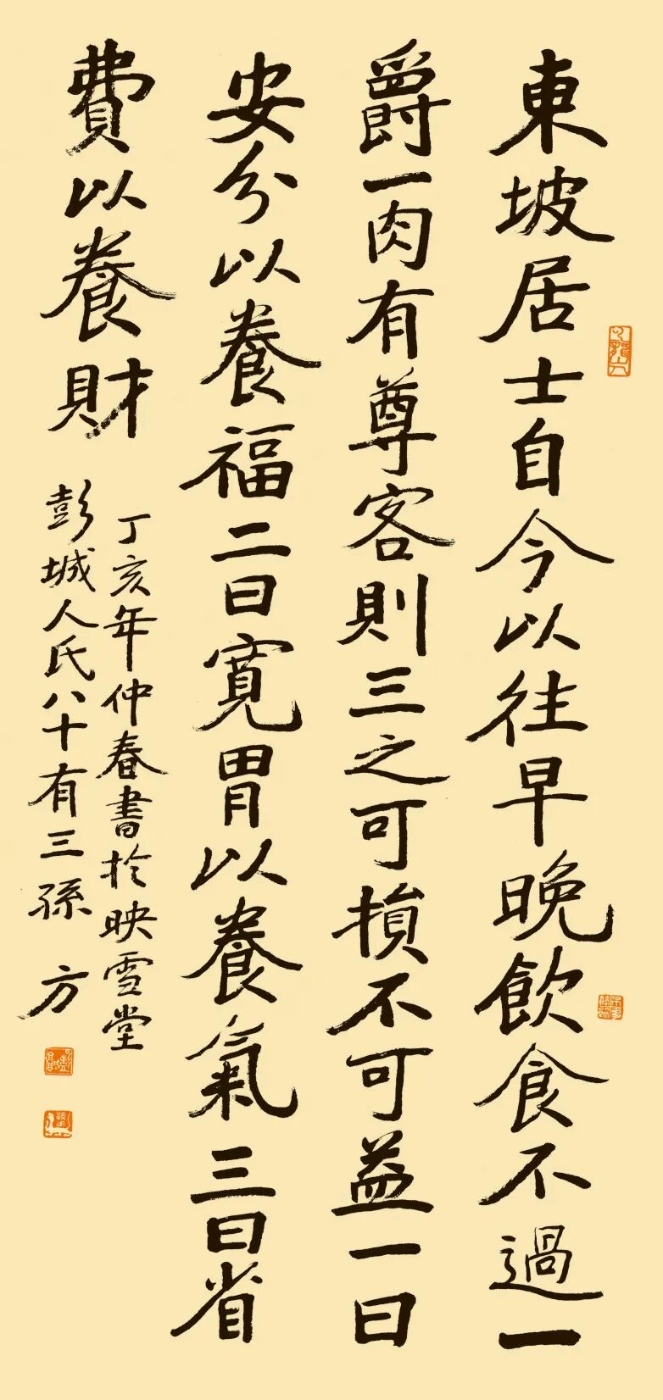 東坡居士自今以往早晚飲食不過一
爵一肉有尊客則三之可損不可益一曰
安分以養福二曰寬胃以養氣三曰省
費以養財
丁亥年仲春書於映雪堂
彭城人氏八十有三孫方